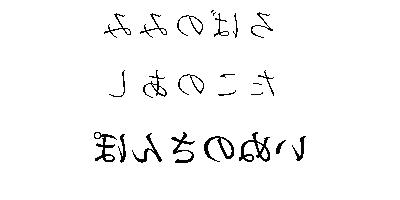 ろばのみみ
たこのあし
いぬのさんぽ